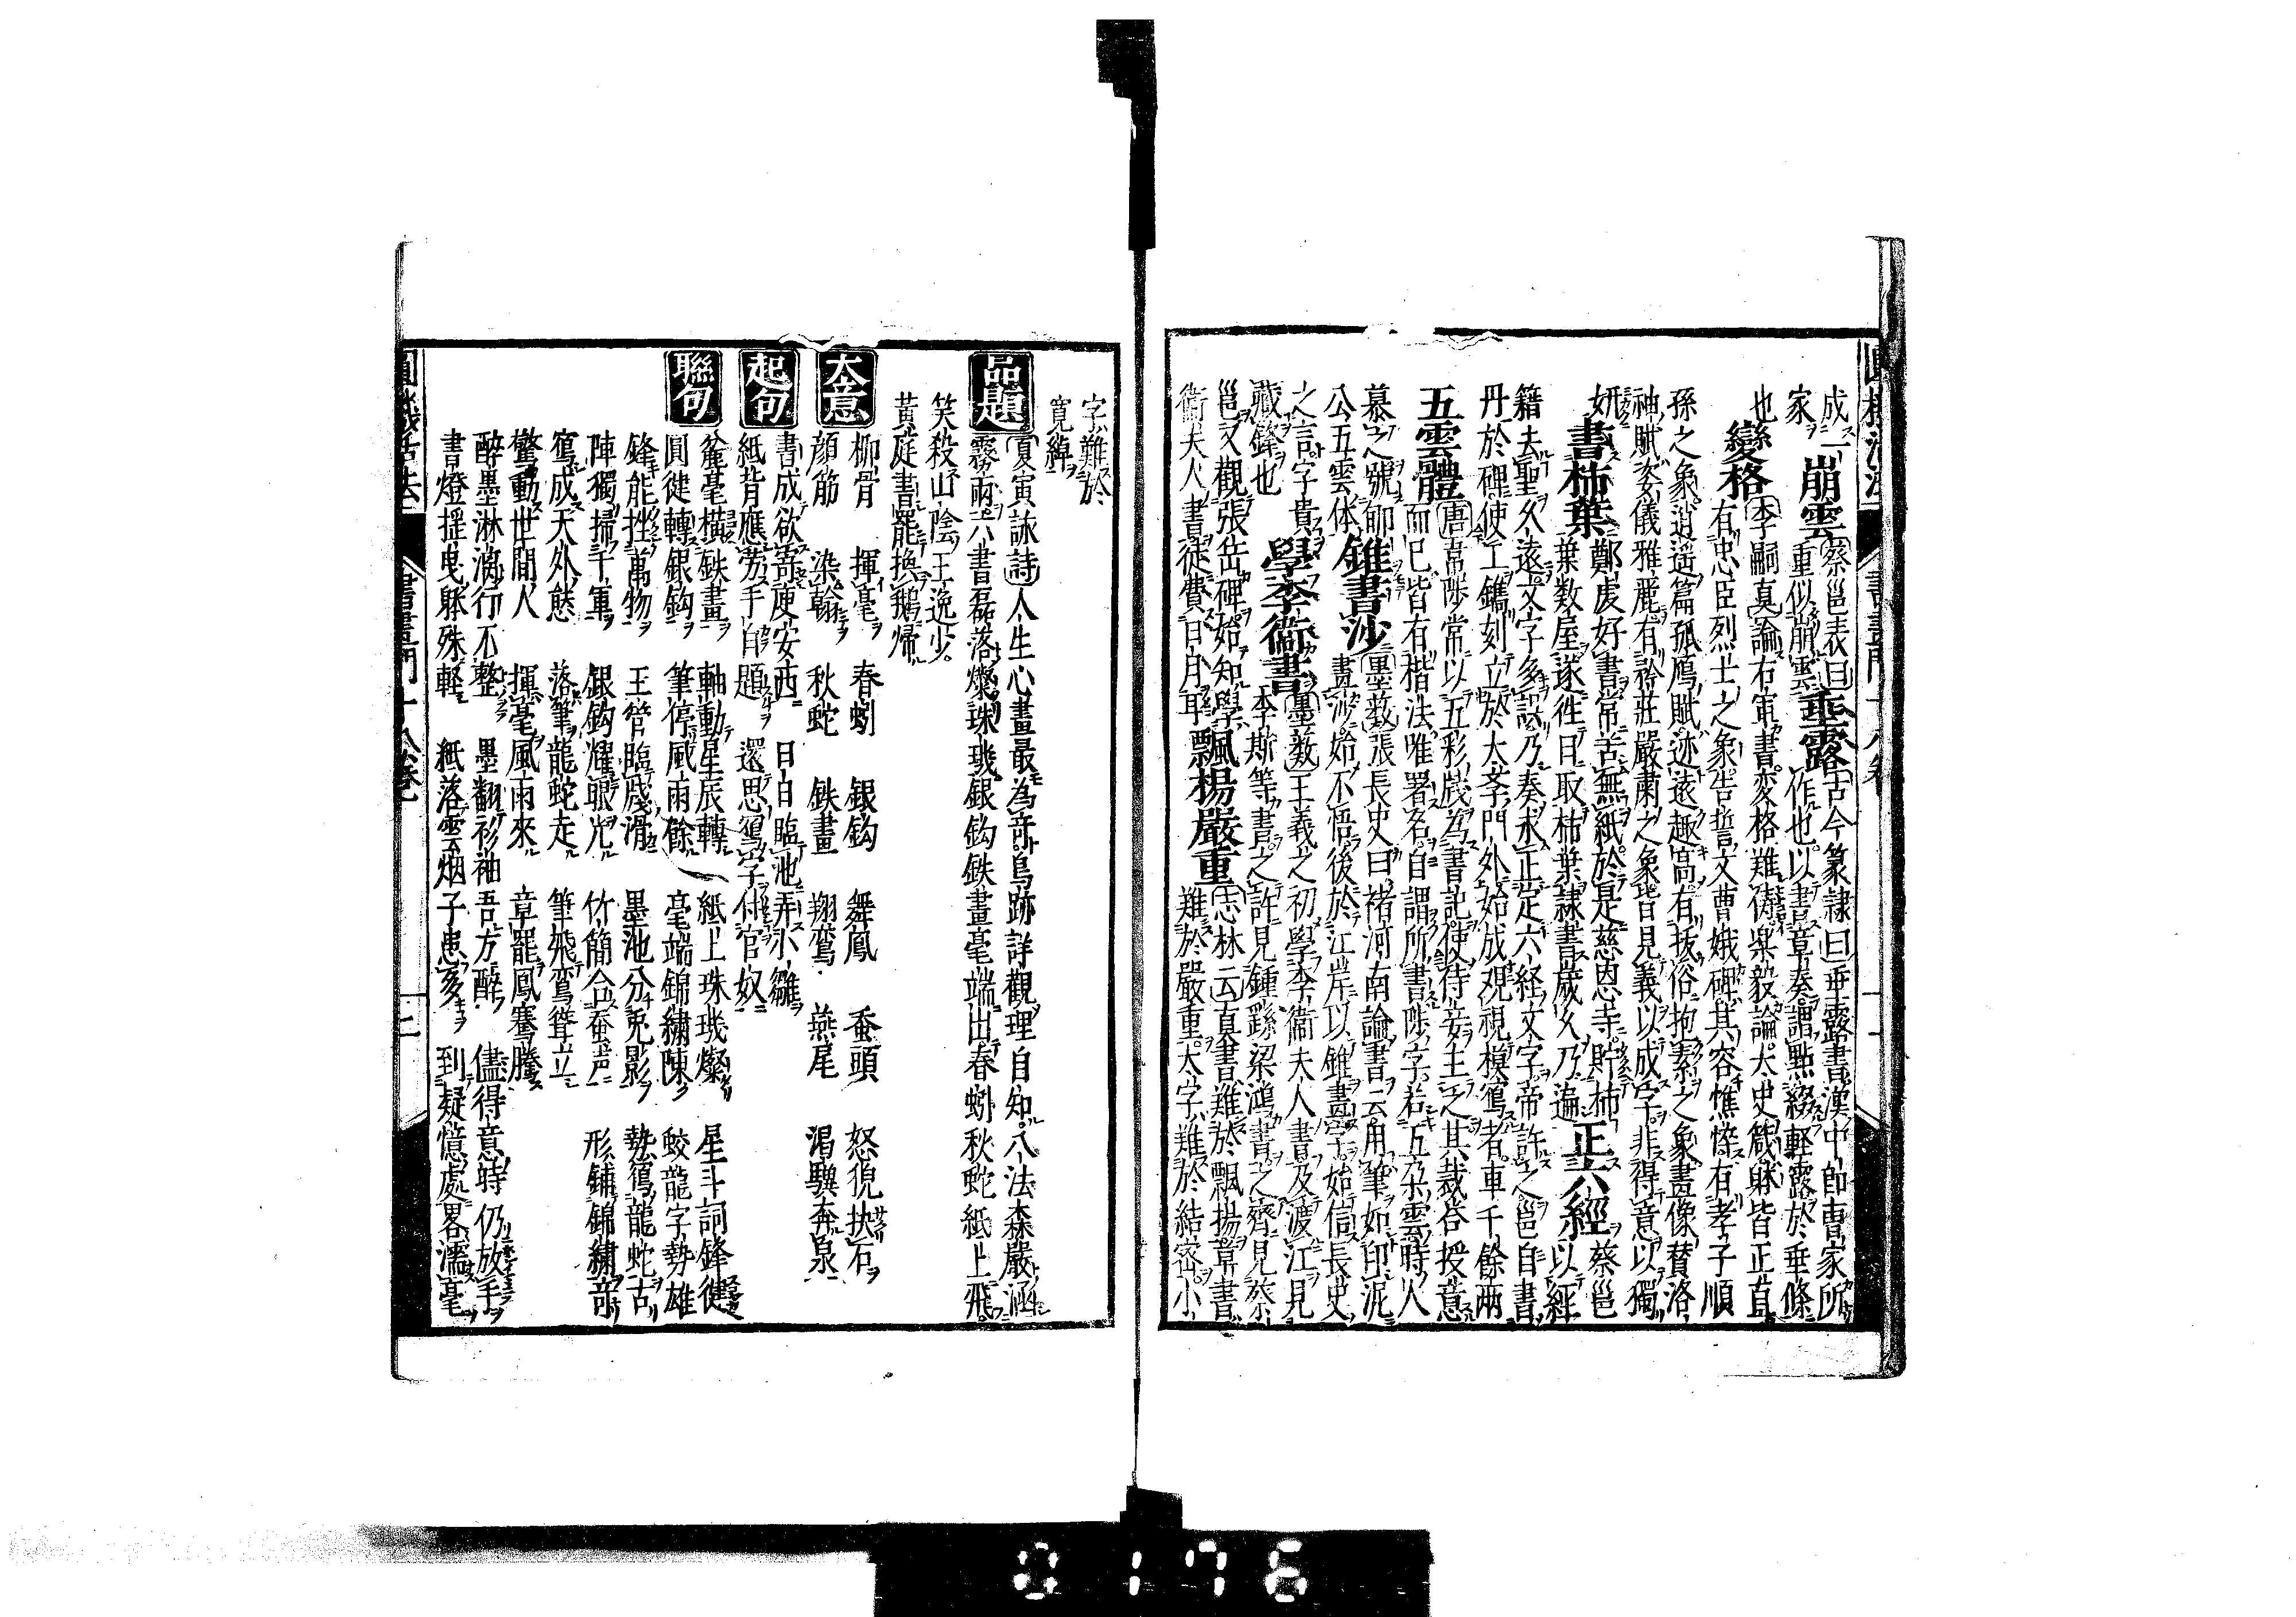 成
家
崩雲
蔡邕表曰
重似崩雲
垂露
古今篆隷曰垂露書漢中郎曹家所
作也以書章奏謂點綴輕露於垂條
也
變格
李嗣真論右軍書変格難儔楽毅論太史箴躰皆正直
有忠臣烈士之象告誓文曹娥碑其容憔悴有孝子順
孫之象逍遥篇孤鴈賦迹遠趣高有抜俗抱素之象畫像賛洛
神賦姿儀雅麗有矜荘嚴粛之象皆見義以成字非得意以獨
妍
書柿葉
鄭虔好書常苦無紙於是慈恩寺貯柿
葉数屋遂徃日取柿葉隷書歳久乃遍
正六經
蔡邕
以經
籍去聖久遠文字多誤乃奏求正定六経文字帝許之邕自書
丹於碑使工鐫刻立於太学門外始成観視模寫者車千餘両
五雲體
唐韋陟常以五彩牋為書記使侍妾主之其裁荅授意
而已皆有楷法唯署名自謂所書陟字若五朶雲時人
慕之號郇
公五雲体
錐書沙
墨薮張長史曰褚河南論書云用筆如印泥
畫沙始不悟後於江岸以錐畫字始信長史
之言字貴
藏鋒也
學李衞書
墨薮王羲之初學李衞夫人書及渡江見
李斯等書之許見鍾繇梁鴻書之齊見蔡
邕又觀張岳碑始知學
衞夫人書徒費日月耳
飄楊嚴重
志林云真書難於飄揚草書
難於嚴重大字難於結密小
字難於
寛綽
品題
夏寅詠詩人生心畫最為奇鳥跡詳觀理自知八法森嚴涵
霧雨六書磊落燦珠璣銀鈎鉄畫毫端出春蚓秋蛇紙上飛
笑殺山陰王逸少
黄庭書罷換鵝帰
大意
柳骨 揮毫 春蚓 銀鈎 舞鳳 蚕頭 怒猊抉石
顔筋 染翰 秋蛇 鉄畫 翔鸞 燕尾 渇驥奔泉
起句
書成欲寄庾安西 日日臨池弄小雛
紙背應労手自題 還思寫字付官奴
聯句
毫橫鉄畫 軸動星辰轉 紙上珠璣燦 星斗詞鋒健
圓健轉銀鈎 筆停風雨餘 毫端錦繍陳 蛟龍字勢雄
鋒能挫萬物 王管臨牋滑 墨池分兎影 勢寫龍蛇古
陣獨掃千軍 銀鈎耀眼光 竹簡合蚕声 形鋪錦繍奇
寫成天外態 落筆龍蛇走 筆飛鸞聳立
驚動世間人 揮毫風雨來 章罷鳳騫騰
醉墨淋漓行不整 墨翻衫袖吾方醉 儘得意時仍放手
書燈揺曳躰殊軽 紙落雲烟子患多 到疑憶處畧濡毫
書畫門十八巻
0176